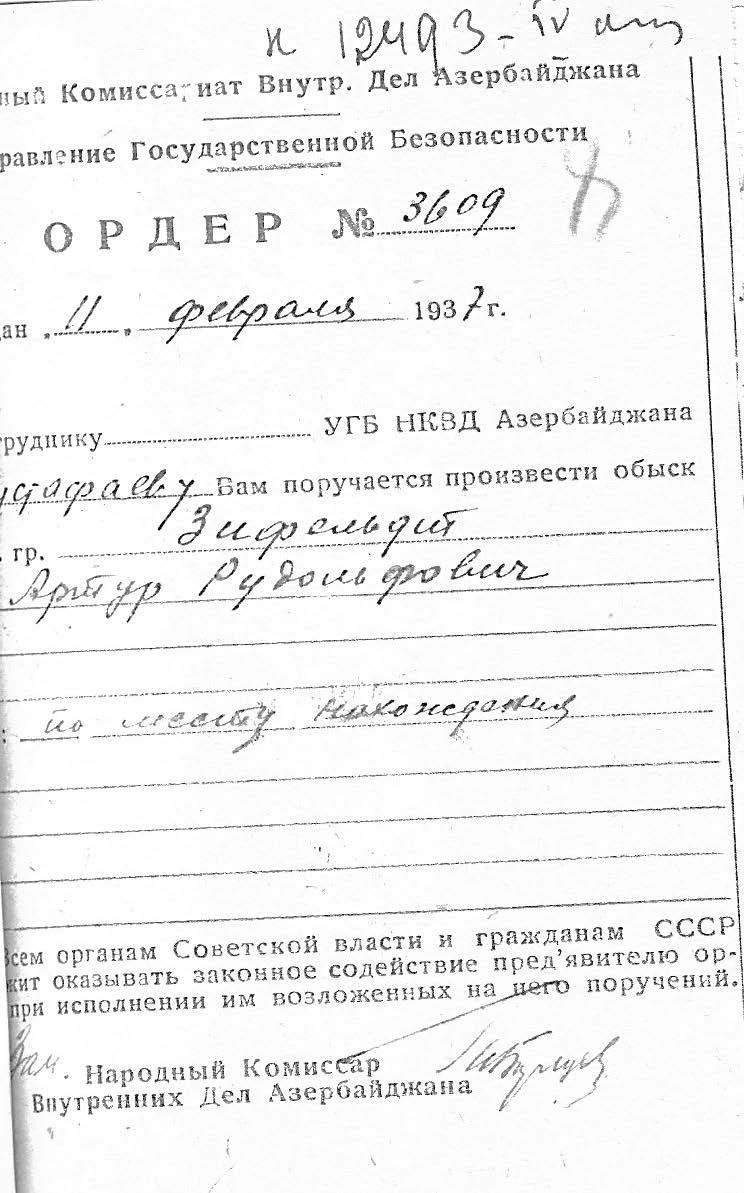 н 12493 - IV
ный Комиссариат Внутр. Дел Азербайджана
равление Государственной Безопасности
ОРДЕР № 3609
ан „11„ февраля 1937 г.
труднику УГБ НКВД Азербайджана
устафаеву Вам поручается произвести обыск
. гр. Зифельдт
Артур Рудольфович
: по месту нахождения
Всем органам Советской власти и гражданам СССР
жит оказывать законное содействие пред'явителю ор-
при исполнении им возложенных на него поручений.
Зам. Народный Комиссар
Внутренних Дел Азербайджана